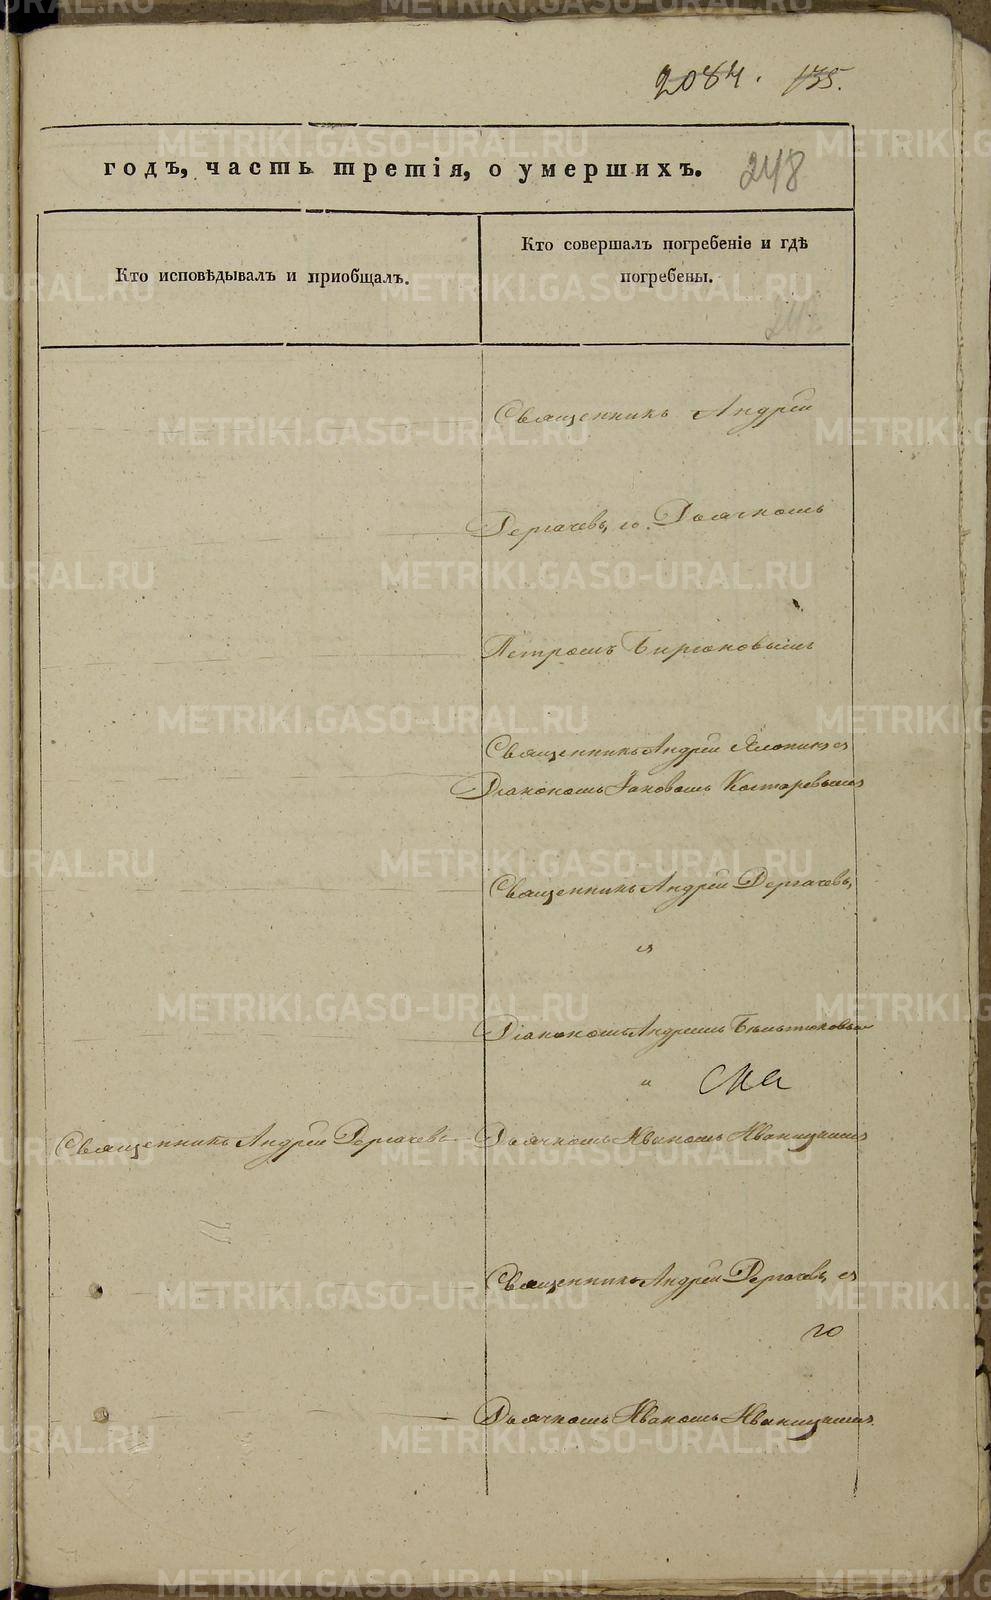 2084. 135.
годъ, часть третія, о умершихъ. 248
Кто исповѣдывалъ и приобщалъ.
Кто совершалъ погребеніе и гдѣ
погребены.
Священникъ Андрей
Дергачевъ, со Дьячкомъ
Петромъ Бирюковымъ
Священникъ Андрей съ
Діакономъ Іаковомъ Костаревымъ
Священникъ Андрей Дергачевъ,
съ
Діакономъ Андреемъ
Священникъ Андрей Дергачевъ Дьячкомъ Иваномъ Иваницкимъ
Священникъ Андрей Дергачевъ, съ
Дьячкомъ Иваномъ Иваницкимъ
METRIKI.GASO-URAL.RU